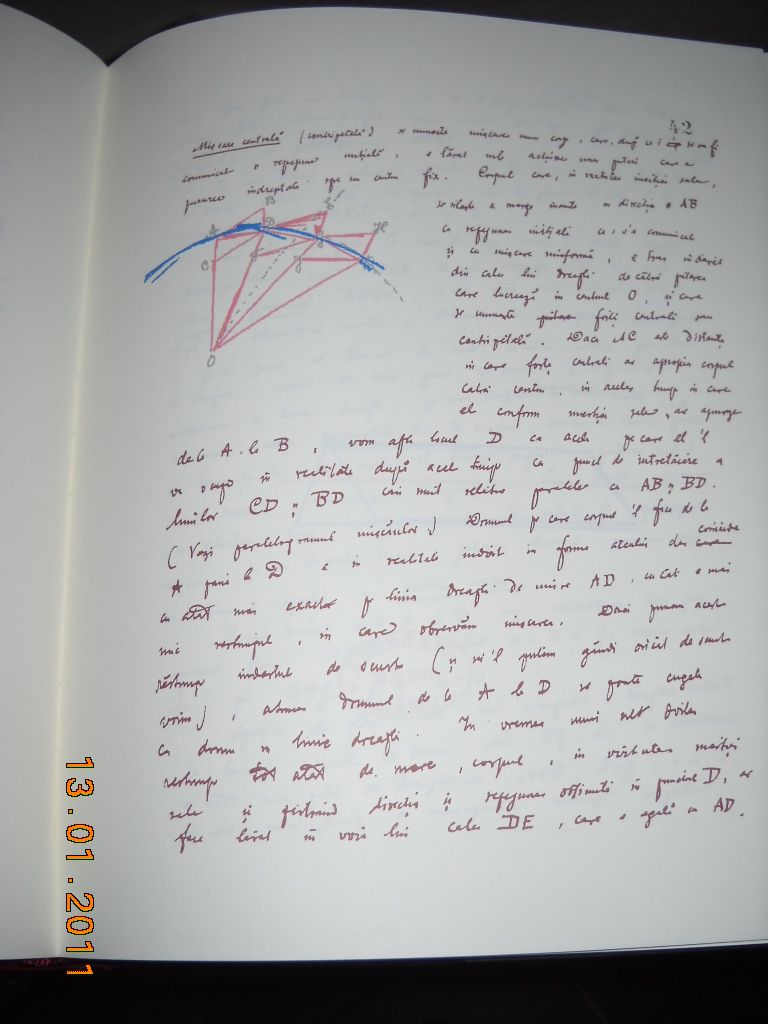 42
Mișcare centrală (centripetală) se numește mișcarea unui corp, care, după ce i s-a
comunicat o repejune inițială, e tărat sub acțiunea unei puteri care e
pururea îndreptată spre un centru fix. Corpul care, în virtutea inerției sale,
se silește a merge înainte în direcția AB
cu repejunea inițială ce i s'a comunicat
și cu mișcare uniformă, e tras îndărăt
din calea lui dreaptă de cătră puterea
care lucrează în centrul O, și care
se numește puterea forții centrali sau
centripetală. Daca AC est distanța
în care forța centrali ar apropia corpul
cătră centru, în acelaș timp în care
el conform inerției sale, ar ajunge
de la A la B, vom afla locul D ca acela pe care el 'l
va ocupa în realitate după acel timp ca punct de întretăiere a
liniilor CD și BD cari sunt relative paralele cu AB și BD.
(Vezi paralelogramul mișcărilor) Drumul pe care corpul 'l face de la
coincide
A pană la D e în realitate îndoit în forma arcului dar care
cu atat mai exact pe linia dreaptă de unire AD, cu cat e mai
mic restimpul, în care observăm mișcarea. Daca punem acest
restimp îndestul de scurt (și ni'l putem gândi oricât de scurt
vrim), atunci drumul de la A la D se poate
ca drum în linie dreaptă. In vremea unui alt doilea
restimp tot atat de mare, corpul, în virtutea inerției
sale și păstrând direcția și repejunea obținută în punctul D, ar
face calea DE, care e egală cu AD.
A
B
C
D
E
H
O
13.01.2011